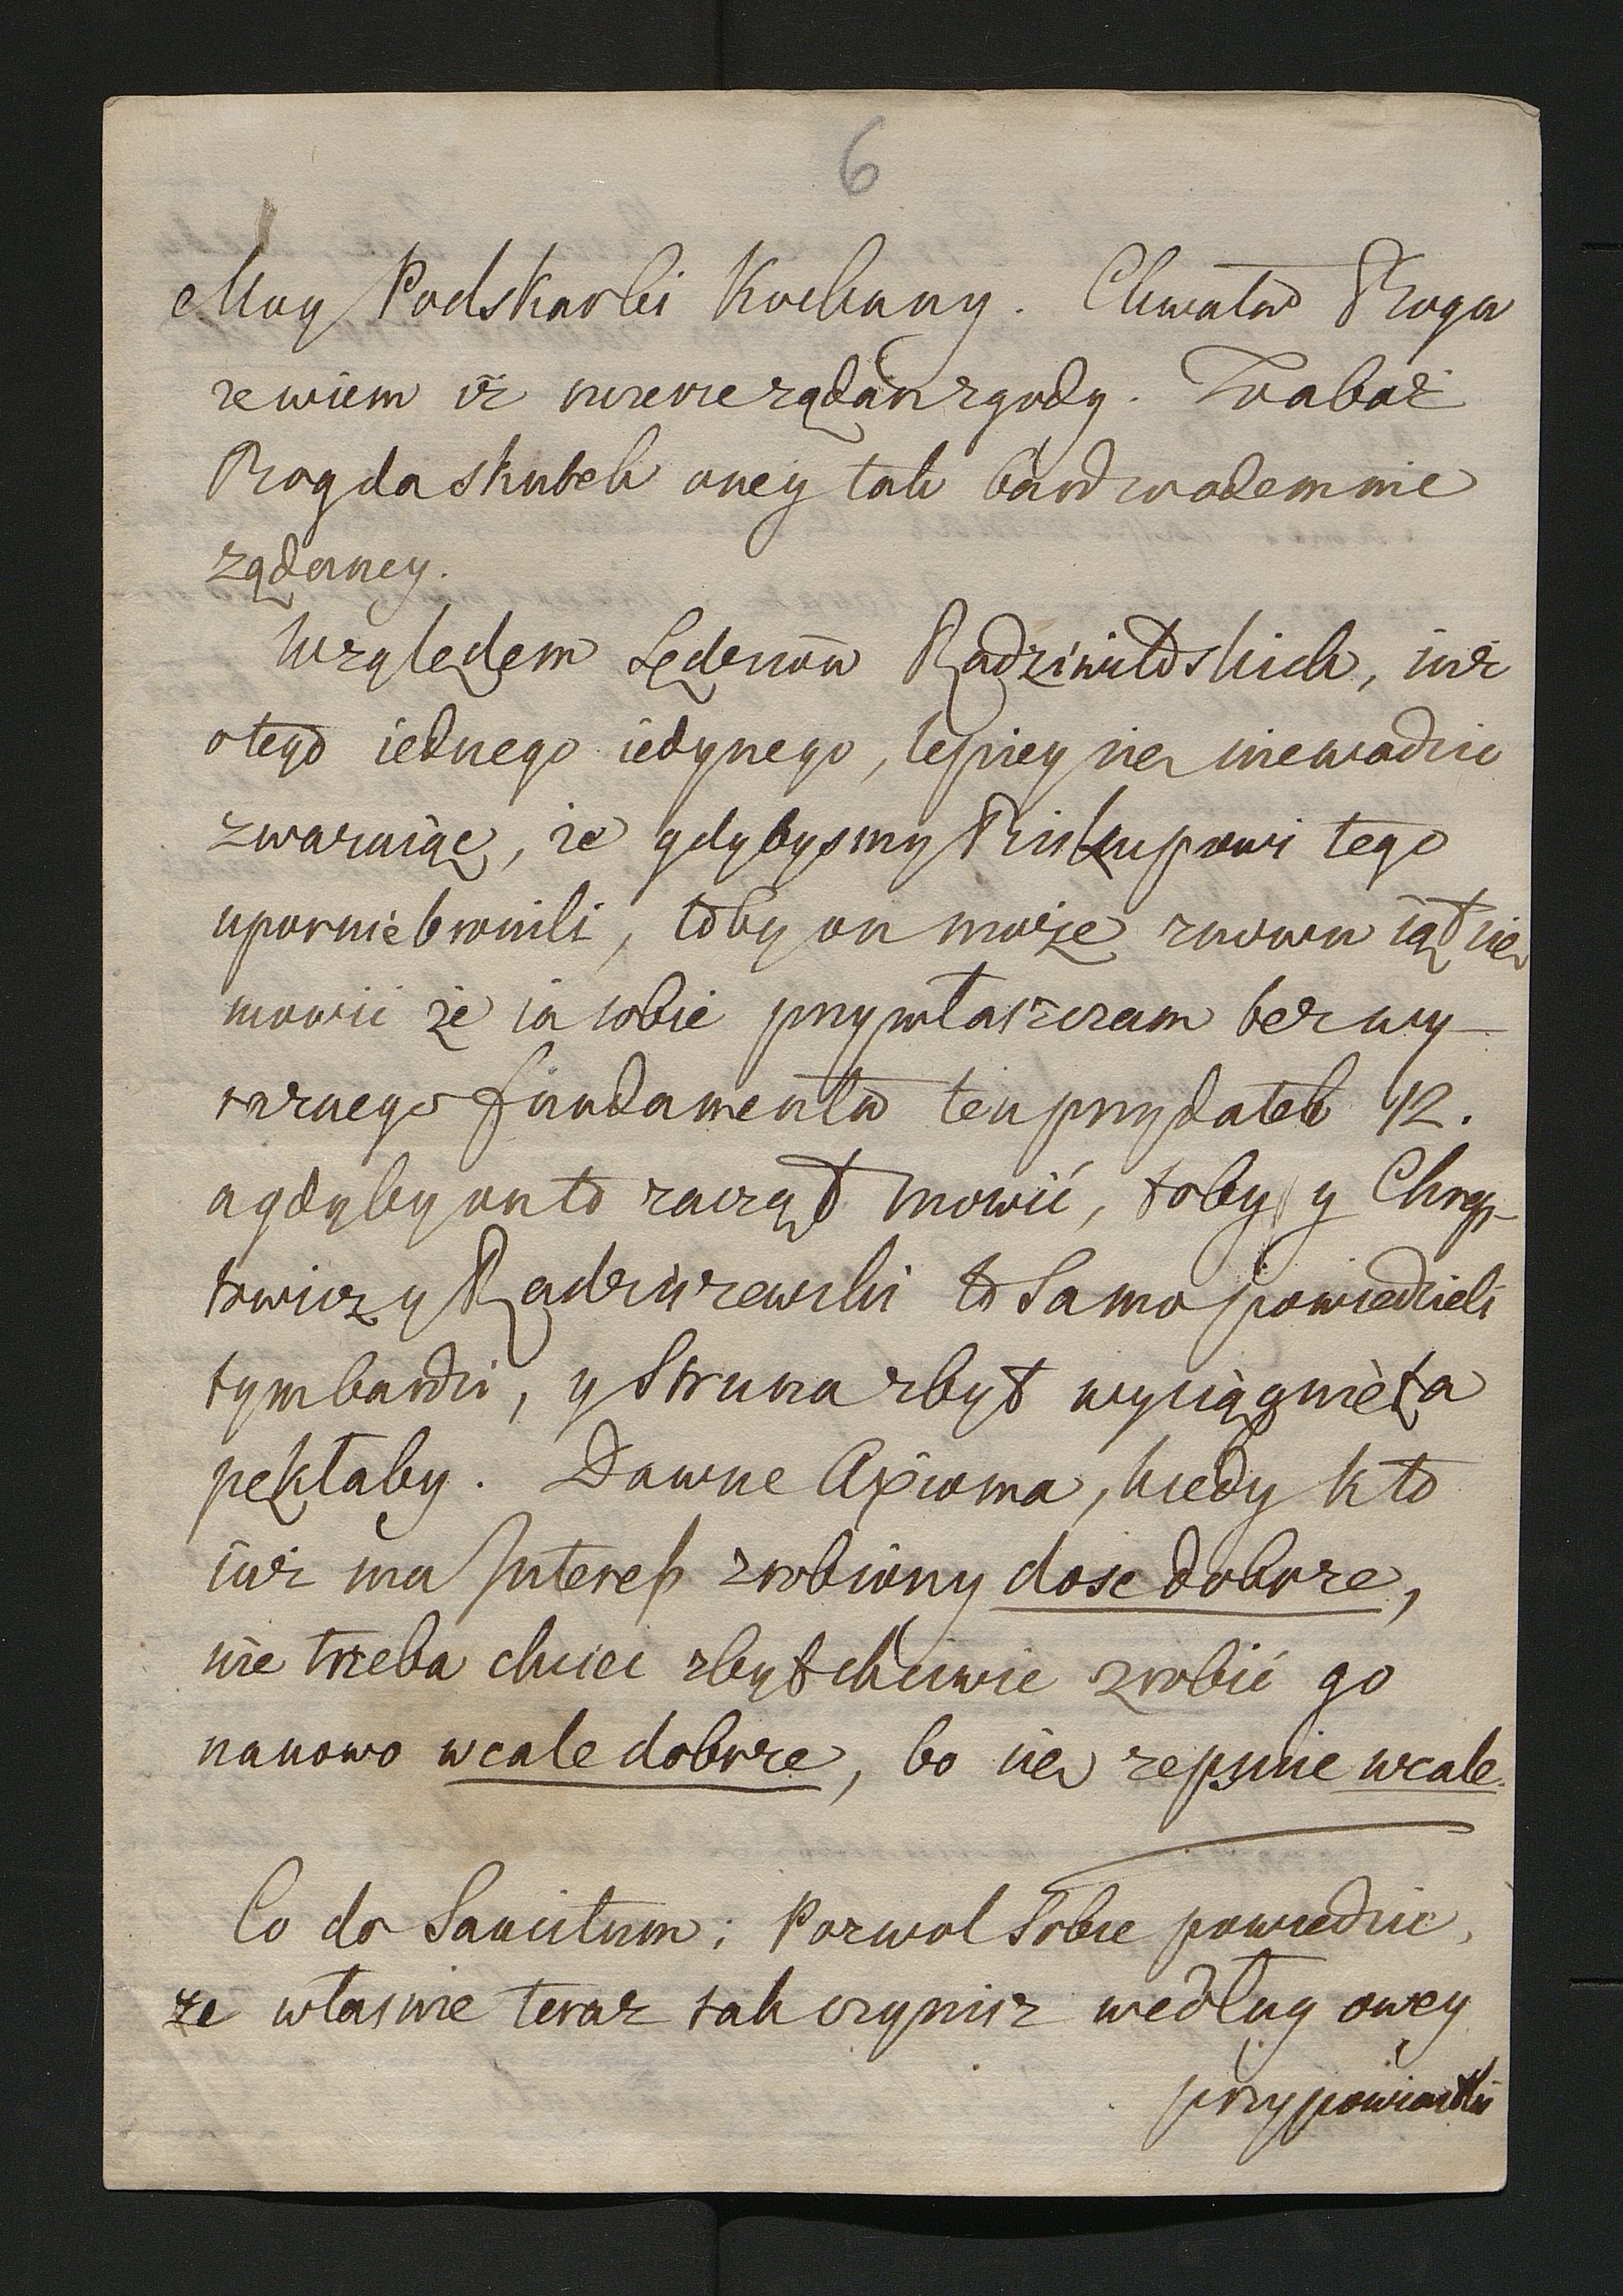 6
Moy Podskarbi Kochany. Chwała Bogu
że wiem iż szczerze żądam zgody.
Bog da skutek oney tak bardzo odemnie
żądaney.
Względem Sędziow Radziwiłłskich, iuż
o tego iednego iedynego, lepiey się niewadzic
zwaźaiąc, że gdybysmy Biskupowi tego
upornie bronili, toby on może znowu iął się
mowić że ia sobie przywłaszczam bez wy-
raznego fundamentu ten przydatek 12.
a gdyby on to zaczął mowić, toby y Chrep-
towicz y Radziszewski to Samo powiedzieli
tym bardzi, y Struna zbyt wyciągnięta
pękłaby. Dawne Axioma, kiedy kto
iuż ma Interess zrobiony dosc dobrze,
nie trzeba chciec zbyt chciwie zrobić go
nanowo wcale dobrze, bo się zepsuie wcale.
Co do Sancitum; Pozwol Sobie powiedzic,
że własnie teraz tak czynisz według owey
przypowiastki